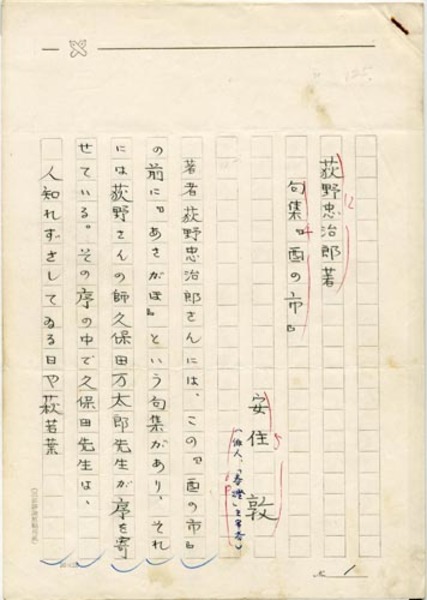 荻野忠治郎著
句集『酉の市』
安住敦
(俳人、「春燈」主宰者)
著者荻野忠治郎さんには、この『酉の市』
の前に『あさがほ』という句集があり、それ
には荻野さんの師久保田万太郎先生が序を寄
せている。その序の中で久保田先生は、
人知れずさしてゐる日や萩若葉
1